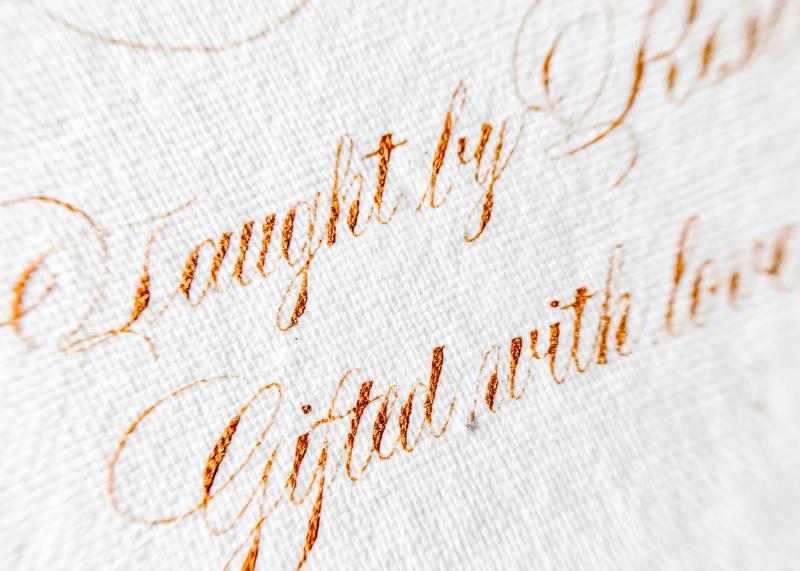 Taught by
Gifted with love